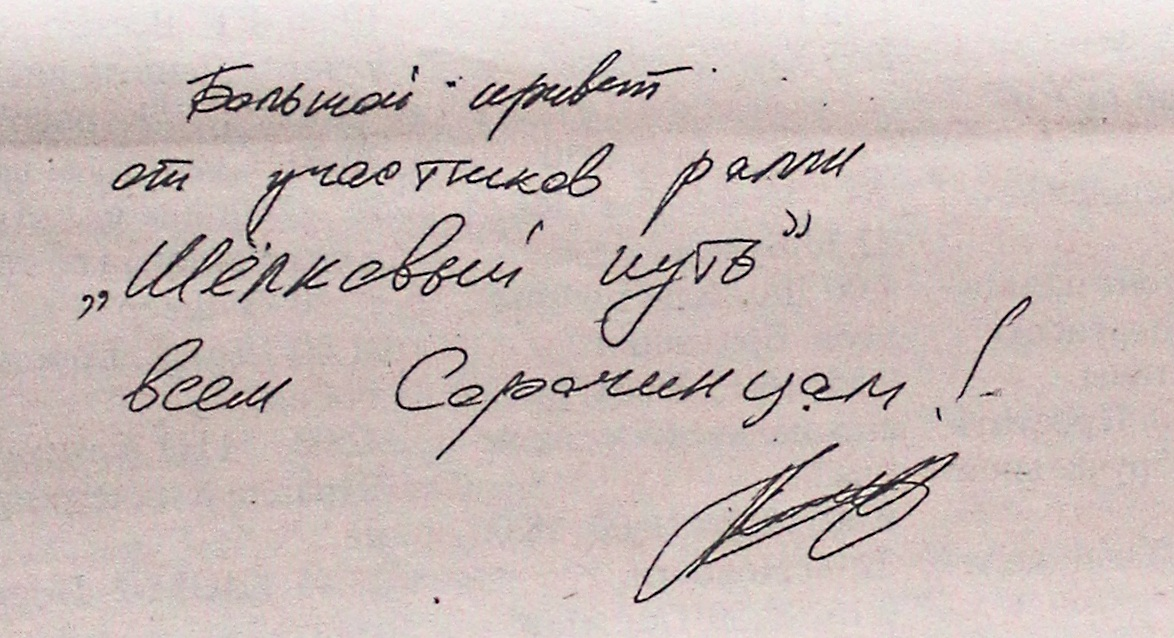 Большой привет
от участников ралли
„Шёлковый путь”
всем Сорочинцам!